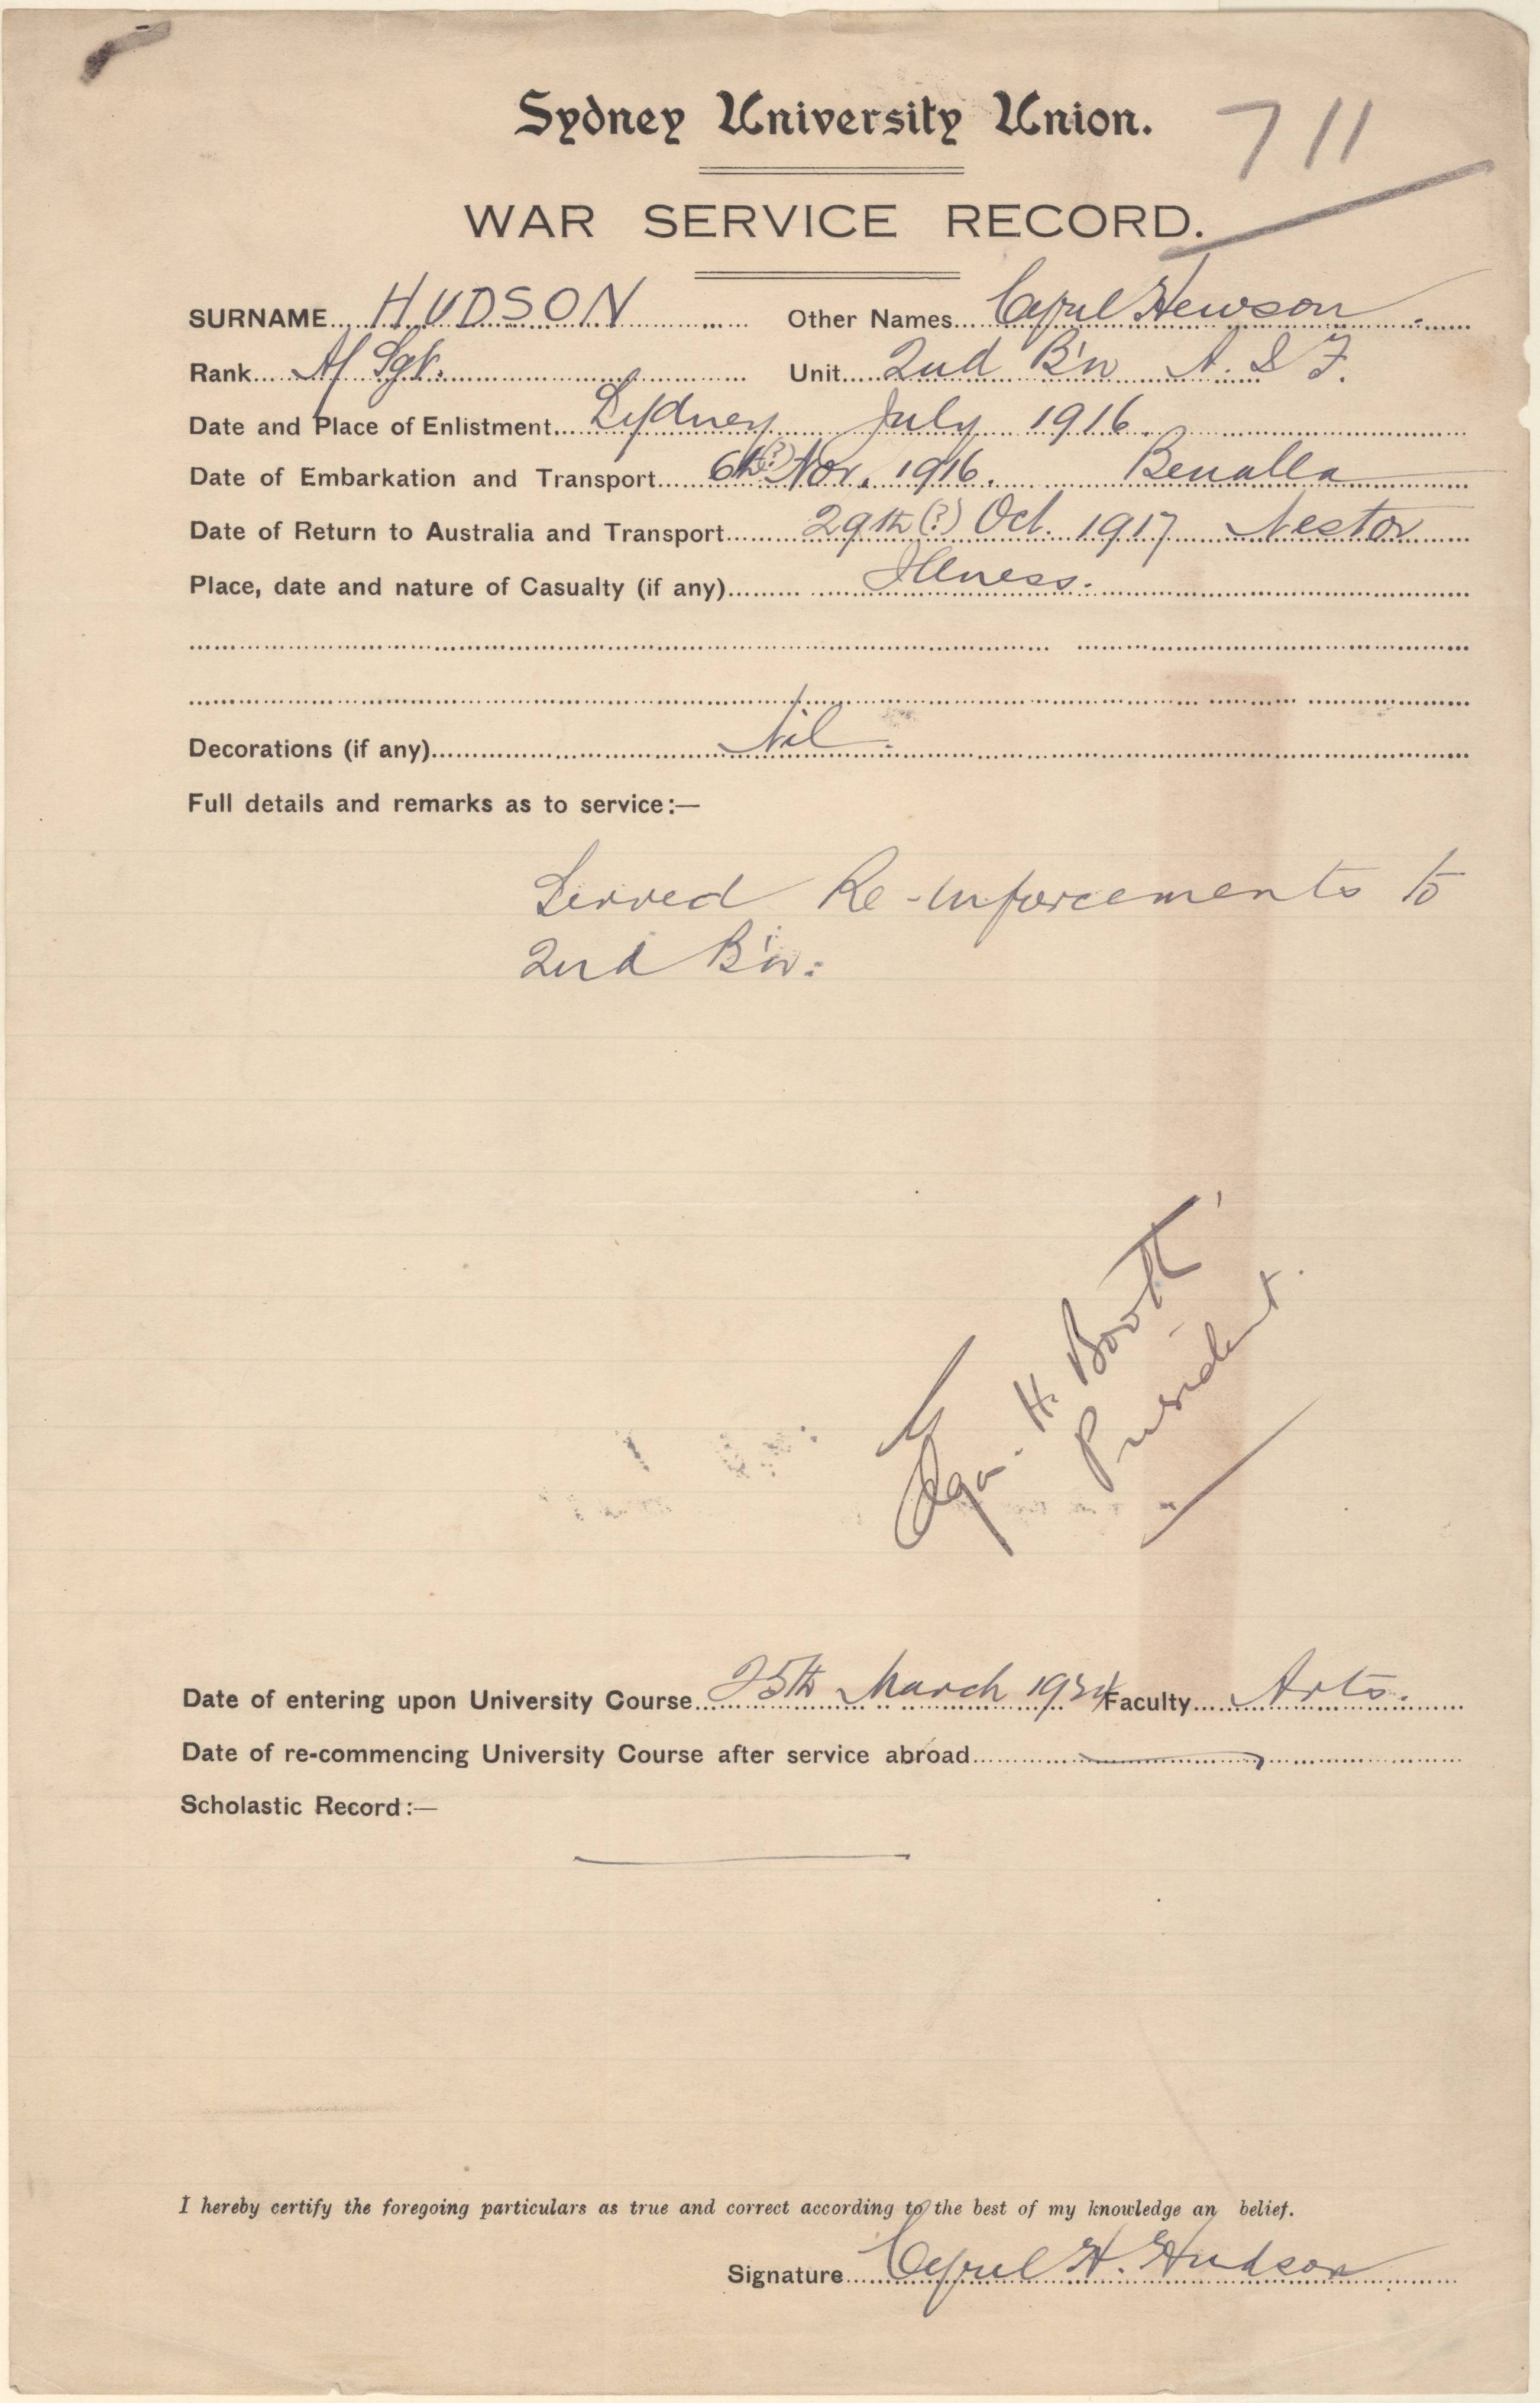 Sydney University Union.
711
WAR SERVICE RECORD.
SURNAME HUDSON Other Names Cyril Hewson.
Rank A/Sgt. Unit 2nd B'n A.I.F.
Date and Place of Enlistment Sydney July 1916.
Date of Embarkation and Transport 6th(?) Nov. 1916. Benalla
Date of Return to Australia and Transport 29th(?) Oct. 1917 Nestor
Place, date and nature of Casualty (if any) Illness.
Decorations (if any) Nil.
Full details and remarks as to service:—
Served Re-inforcements to
2nd B'n:
H. Booth
President.
Date of entering upon University Course 25th March Faculty Arts.
Date of re-commencing University Course after service abroad
Scholastic Record:—
I hereby certify the foregoing particulars as true and correct according to the best of my knowledge an belief.
Signature Cyril H. Hudson